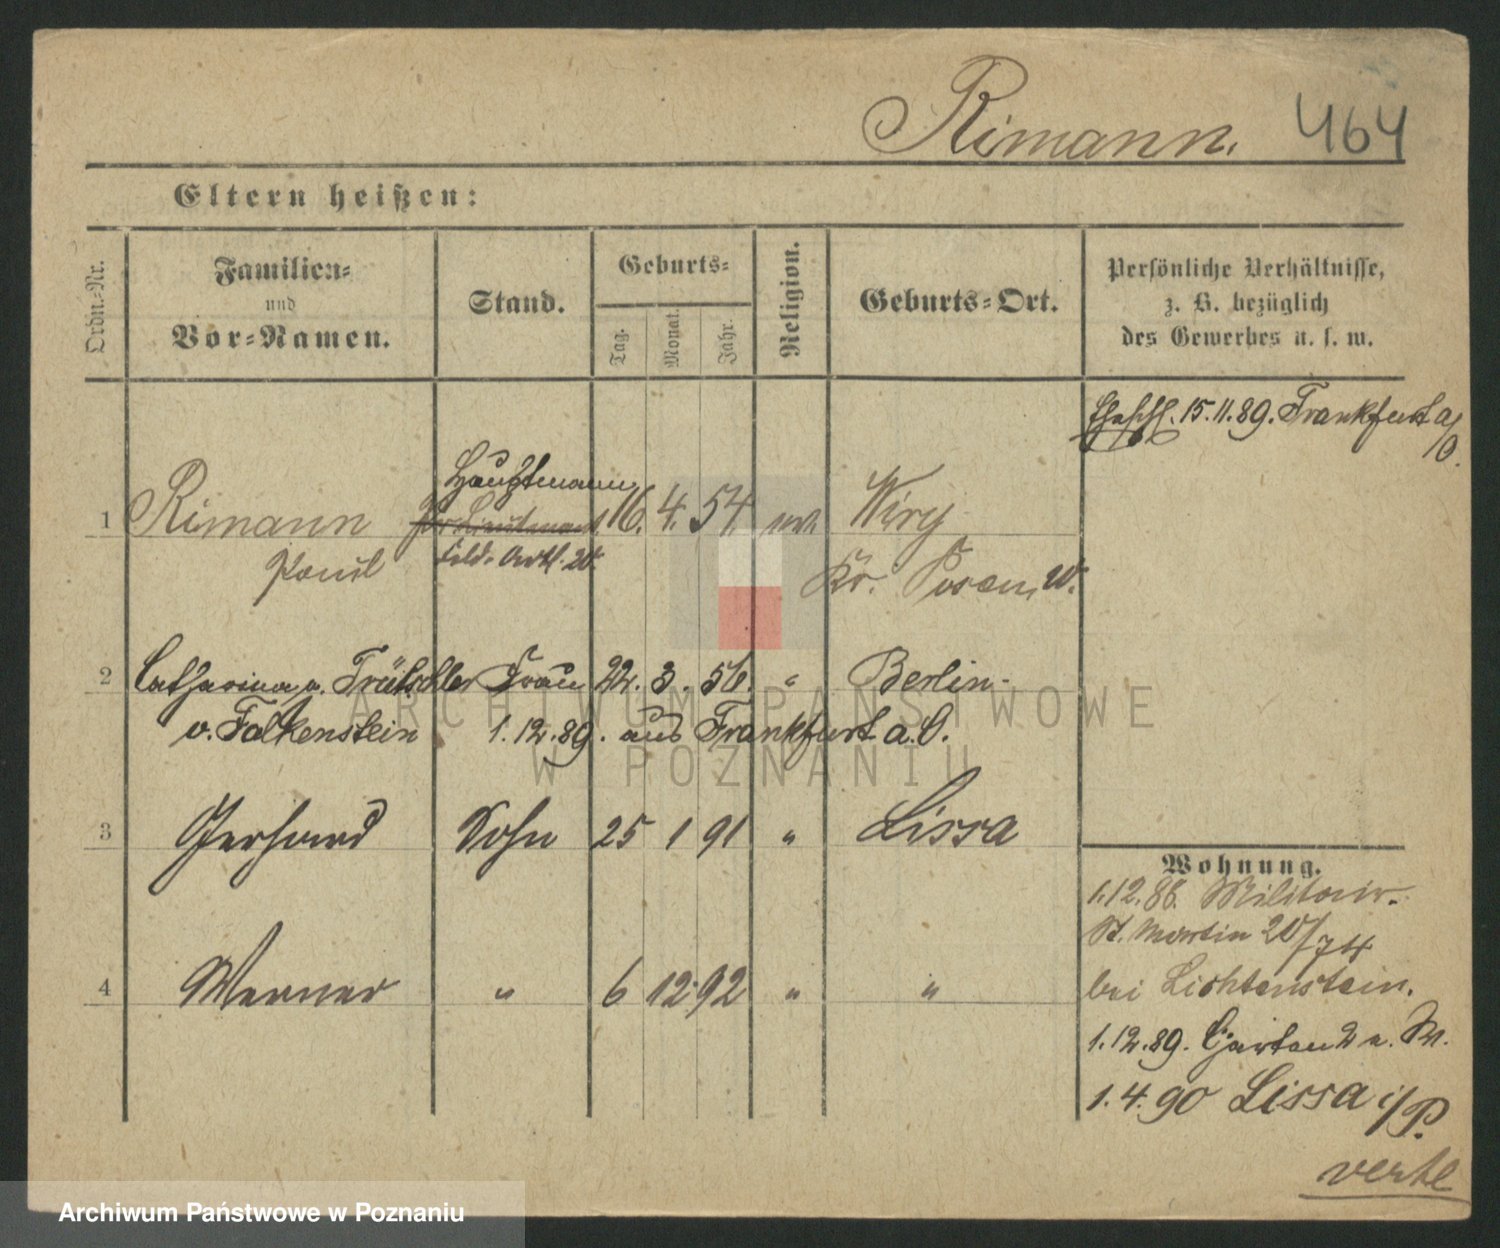 Rimann. 464
Eltern heißen:
Ordn.-Nr.
Familien-
und
Vor-Namen.
Stand.
Geburts-
Tag.
Monat.
Jahr.
Religion.
Geburts-Ort.
Persönliche Verhältnisse,
z. B. bezüglich
des Gewerbes u. s. w.
Eheschl. 15.11.89. Frankfurt a/O.
Hauptmann
1 Rimann Pr. Lieutenant 16. 4. 54. ev. Wiry
Paul Feld-Artl. 20. Kr. Posen W.
2 Catharina v. Trütschler Frau 22. 3. 56. " Berlin.
v. Falkenstein 1.12.89. aus Frankfurt a.O.
3 Gerhard Sohn 25 1 91 " Lissa
4 Werner " 6 12 92 " "
Wohnung.
1.12.86. Militair.
St. Martin 20/74
bei Lichtenstein.
1.12.89. Garten 2 a. W.
1.4.90 Lissa i/P.
verte
ARCHIWUM PAŃSTWOWE
W POZNANIU
Archiwum Państwowe w Poznaniu